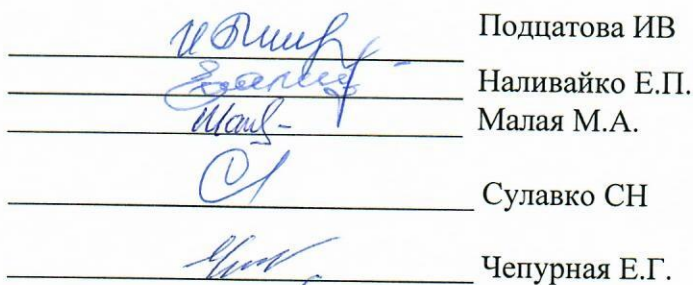 Подцатова ИВ
Наливайко Е.П.
Малая М.А.
Сулавко СН
Чепурная Е.Г.